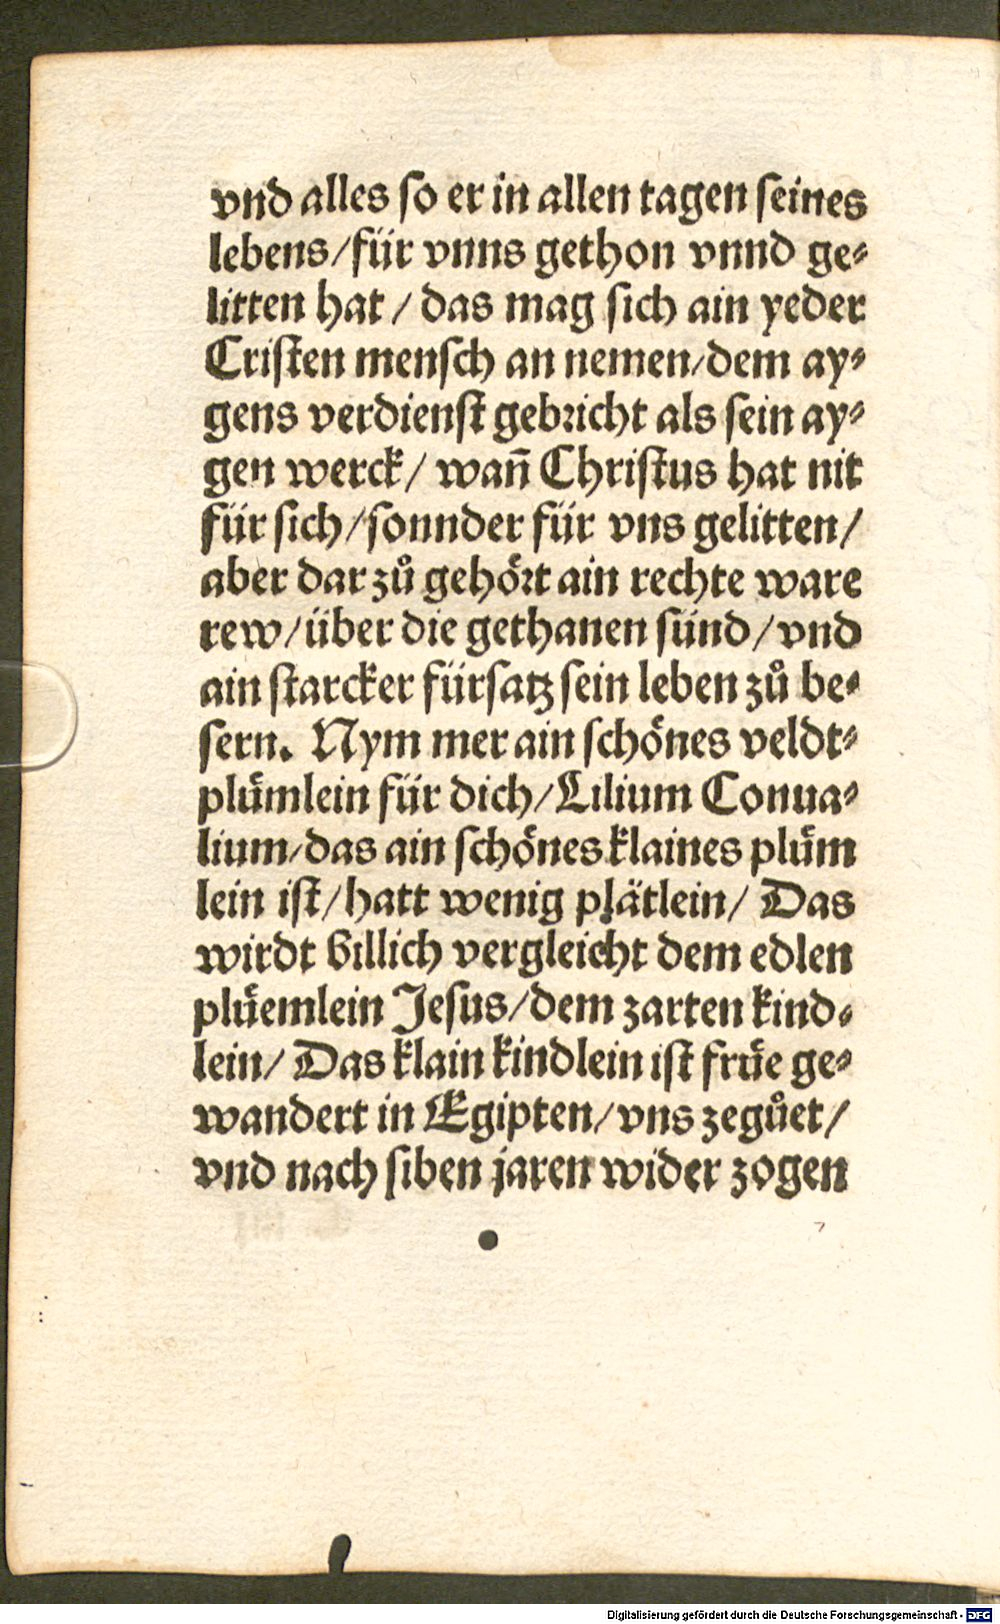 vnd alles so er in allen tagen seines
lebens/für vnns gethon vnnd ge⸗
litten hat / das mag sich ain yeder
Cristen mensch an nemen/dem ay⸗
gens verdienst gebricht als sein ay⸗
gen werck/ wañ Christus hat nit
für sich/sonnder für vns gelitten/
aber dar zů gehoͤrt ain rechte ware
rew/über die gethanen sünd/vnd
ain starcker fürsatz sein leben zů be⸗
sern. Nym mer ain schoͤnes veldt⸗
pluͤmlein für dich/Lilium Conua⸗
lium/das ain schoͤnes klaines pluͤm
lein ist/hatt wenig plätlein/ Das
wirdt billich vergleicht dem edlen
pluͤemlein Jesus/dem zarten kind⸗
lein/ Das klain kindlein ist fruͤe ge⸗
wandert in Egipten/vns zegůet/
vnd nach siben jaren wider zogen
Digitalisierung gefördert durch die Deutsche Forschungsgemeinschaft - DFG